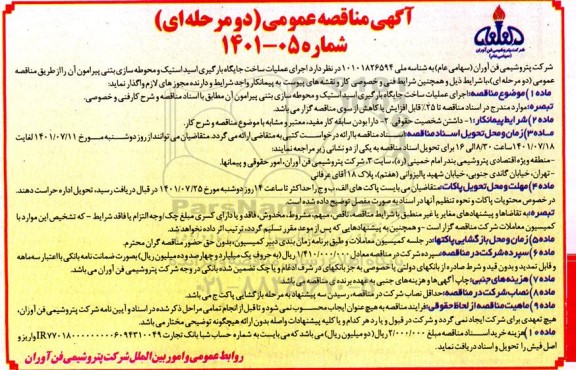 آگهی مناقصه عمومی (دو مرحله ای)
شماره ۰۵-۱۴۰۱
شرکت پتروشیمی فن آوران
(سهامی عام)
شرکت پتروشیمی فن آوران (سهامی عام) به شناسه ملی ۱۰۱۰۱۸۲۶۵۹۴ در نظر دارد اجرای عملیات ساخت جایگاه بارگیری اسید استیک و محوطه سازی بتنی پیرامون آن را از طریق مناقصه
عمومی (دو مرحله ای)، با شرایط ذیل و همچنین شرایط فنی و خصوصی کار و نقشه های پیوست به پیمانکار واجد شرایط و دارنده مجوز های لازم واگذار نماید:
ماده ۱) موضوع مناقصه: اجرای عملیات ساخت جایگاه بارگیری اسید استیک و محوطه سازی بتنی پیرامون آن مطابق با اسناد مناقصه و شرح کار فنی و خصوصی.
تبصره: موارد مندرج در اسناد مناقصه تا ۲۵٪ قابل افزایش یا کاهش از سوی مناقصه گزار می باشد.
ماده ۲) شرایط پیمانکار: ۱- داشتن شخصیت حقوقی ۲- دارا بودن سابقه کار مفید، معتبر و مشابه با موضوع مناقصه و شرح کار.
ماده ۳) زمان و محل تحویل اسناد مناقصه: اسناد مناقصه با ارائه درخواست کتبی به متقاضی ارائه می گردد. متقاضیان می توانند از روز دوشنبه مورخ ۱۴۰۱/۰۷/۱۱ لغایت
۱۴۰۱/۰۷/۱۸ ساعت ۸:۳۰ الی ۱۶ برای تحویل اسناد مناقصه به یکی از دو نشانی زیر مراجعه نمایند:
-منطقه ویژه اقتصادی پتروشیمی بندر امام خمینی (ره)، سایت ۳، شرکت پتروشیمی فن آوران، امور حقوقی و پیمانها.
-تهران، خیابان گاندی جنوبی، خیابان شهید پالیزوانی (هفتم)، پلاک ۱۸ آقای عرفانی
ماده ۴) مهلت و محل تحویل پاکات: متقاضیان می بایست پاکت های الف، ب و ج را حداکثر تا ساعت ۱۴ روز دوشنبه مورخ ۱۴۰۱/۰۷/۲۵ در قبال دریافت رسید، تحویل اداره حراست دهند.
در خصوص محتویات پاکات و نحوه تنظیم آنها در اسناد به صورت مفصل توضیح داده شده است.
تبصره: به تقاضاها و پیشنهادهای مغایر یا غیر منطبق با شرایط مناقصه، ناقص، مبهم، مشروط، مخدوش، فاقد و یا دارای کسری مبلغ چک/وجه التزام یا فاقد شرایط - که تشخیص این موارد با
کمیسیون معاملات شرکت مناقصه گزار است - و همچنین به پیشنهادهایی که پس از موعد مقرر تسلیم گردد، ترتیب اثر داده نخواهد شد.
ماده ۵) زمان و محل بازگشایی پاکتها: در جلسه کمیسیون معاملات و طبق برنامه زمان بندی دبیر کمیسیون، بدون حق حضور مناقصه گران محترم.
ماده ۶) سپرده شرکت در مناقصه: سپرده شرکت در مناقصه معادل ۱/۴۱۰/۰۰۰/۰۰۰ ریال (به حروف یک میلیارد و چهارصد و ده میلیون ریال) بصورت ضمانت نامه بانکی با اعتبار سه ماهه
و قابل تمدید و بدون قید و شرط صادره از بانکهای دولتی یا خصوصی به جز بانکهای در شرف ادغام و یا چک تضمین شده بانکی در وجه شرکت پتروشیمی فن آوران می باشد.
ماده ۷) هزینه های جنبی: چاپ آگهی ها و هزینه های جنبی به عهده برنده ی مناقصه می باشد.
ماده ۸) نصاب شرکت در مناقصه: حداقل نصاب شرکت در مناقصه، رسیدن سه پیشنهاد به مرحله بازگشایی پاکت ج می باشد.
ماده ۹) ماهیت مناقصه از لحاظ حقوقی: فرآیند مناقصه به هیچ عنوان ایجاب محسوب نمی شود و تا قبل از انجام تمامی مراحل ذکر شده در اسناد و آیین نامه شرکت پتروشیمی فن آوران،
هیچ تعهدی برای شرکت ایجاد نمی گردد و شرکت در قبول و یا رد هر کدام و یا کلیه پیشنهادات واصله بدون ارائه هیچگونه توضیحی مختار می باشد.
ماده ۱۰) هزینه خرید اسناد مناقصه مبلغ ۲/۰۰۰/۰۰۰ ریال (دو میلیون ریال) می باشد که می بایست به شماره حساب شبا بانک تجارت واریز و
اصل فیش را تحویل و اسناد دریافت نمایند.
روابط عمومی و امور بین الملل شرکت پتروشیمی فن آوران